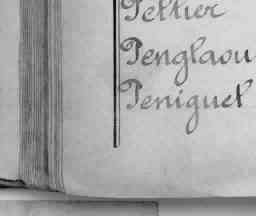 Peltier
Penglaou
Peniguel